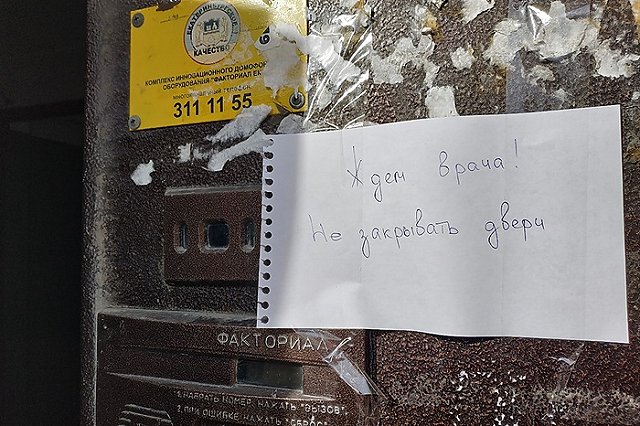 ЕКАТЕРИНБУРГСКОЕ
КАЧЕСТВО
КОМПЛЕКС ИННОВАЦИОННОГО
ОБОРУДОВАНИЯ "ФАКТОРИАЛ
МНОГОКАНАЛЬНЫЙ ТЕЛЕФОН
311 11 55
Ждем врача!
Не закрывать двери
ФАКТОРИАЛ
1. НАБРАТЬ НОМЕР, НАЖАТЬ "ВЫЗОВ"
2. ПРИ ОШИБКЕ НАЖАТЬ "СБРОС"